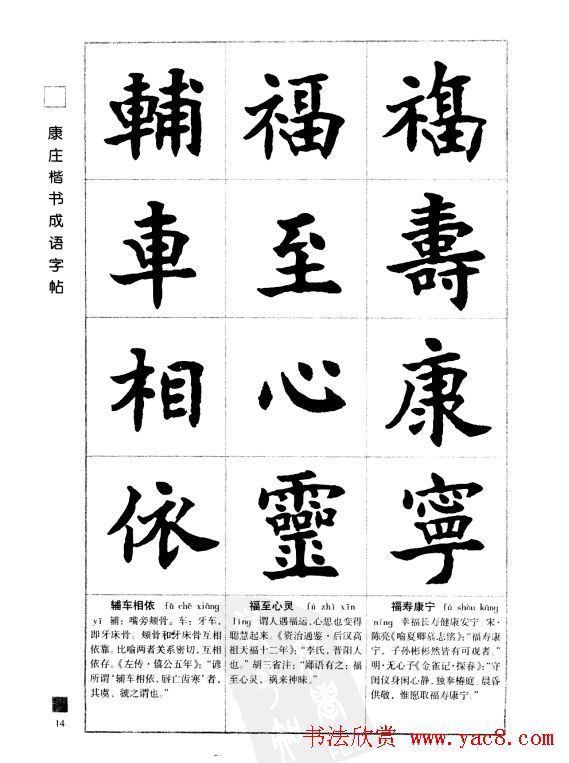 康庄楷书成语字帖
福壽康寧
福至心靈
輔車相依
福寿康宁 fú shòu kāng
níng 幸福长寿健康安宁。宋·
陈亮《喻夏卿墓志铭》：“福寿康
宁，子孙彬彬然皆有可观者。”
明·无心子《金雀记·探春》：“守
闺仪身闲心静，独奉椿庭，晨昏
供敬，惟愿取福寿康宁。”
福至心灵 fú zhì xīn
líng 谓人遇福运，心思也变得
聪慧起来。《资治通鉴·后汉高
祖天福十二年》：“李氏，晋阳人
也。”胡三省注：“鄙语有之：福
至心灵，祸来神昧。”
辅车相依 fǔ chē xiāng
yī 辅：嘴旁颊骨。车：牙车，
即牙床骨。颊骨和牙床骨互相
依靠。比喻两者关系密切，互相
依存。《左传·僖公五年》：“谚
所谓‘辅车相依，唇亡齿寒’者，
其虞、虢之谓也。”
14
书法欣赏www.yac8.com